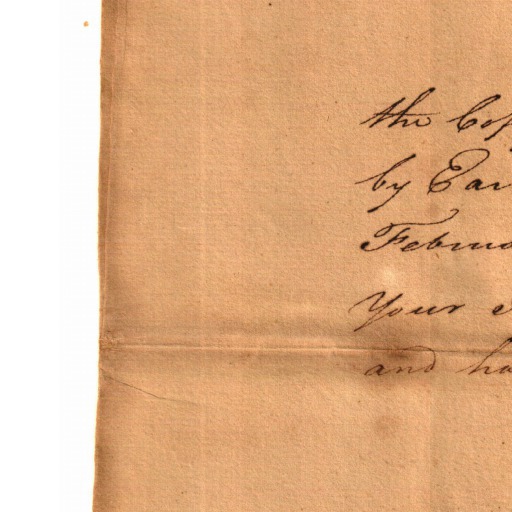 the Cop
by Ear
Februa
Your
and ha